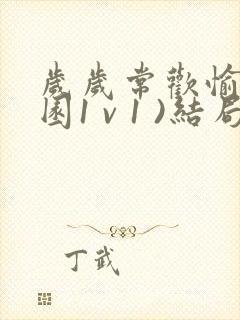 歲歲常歡愉
園1v1)結局
丁武